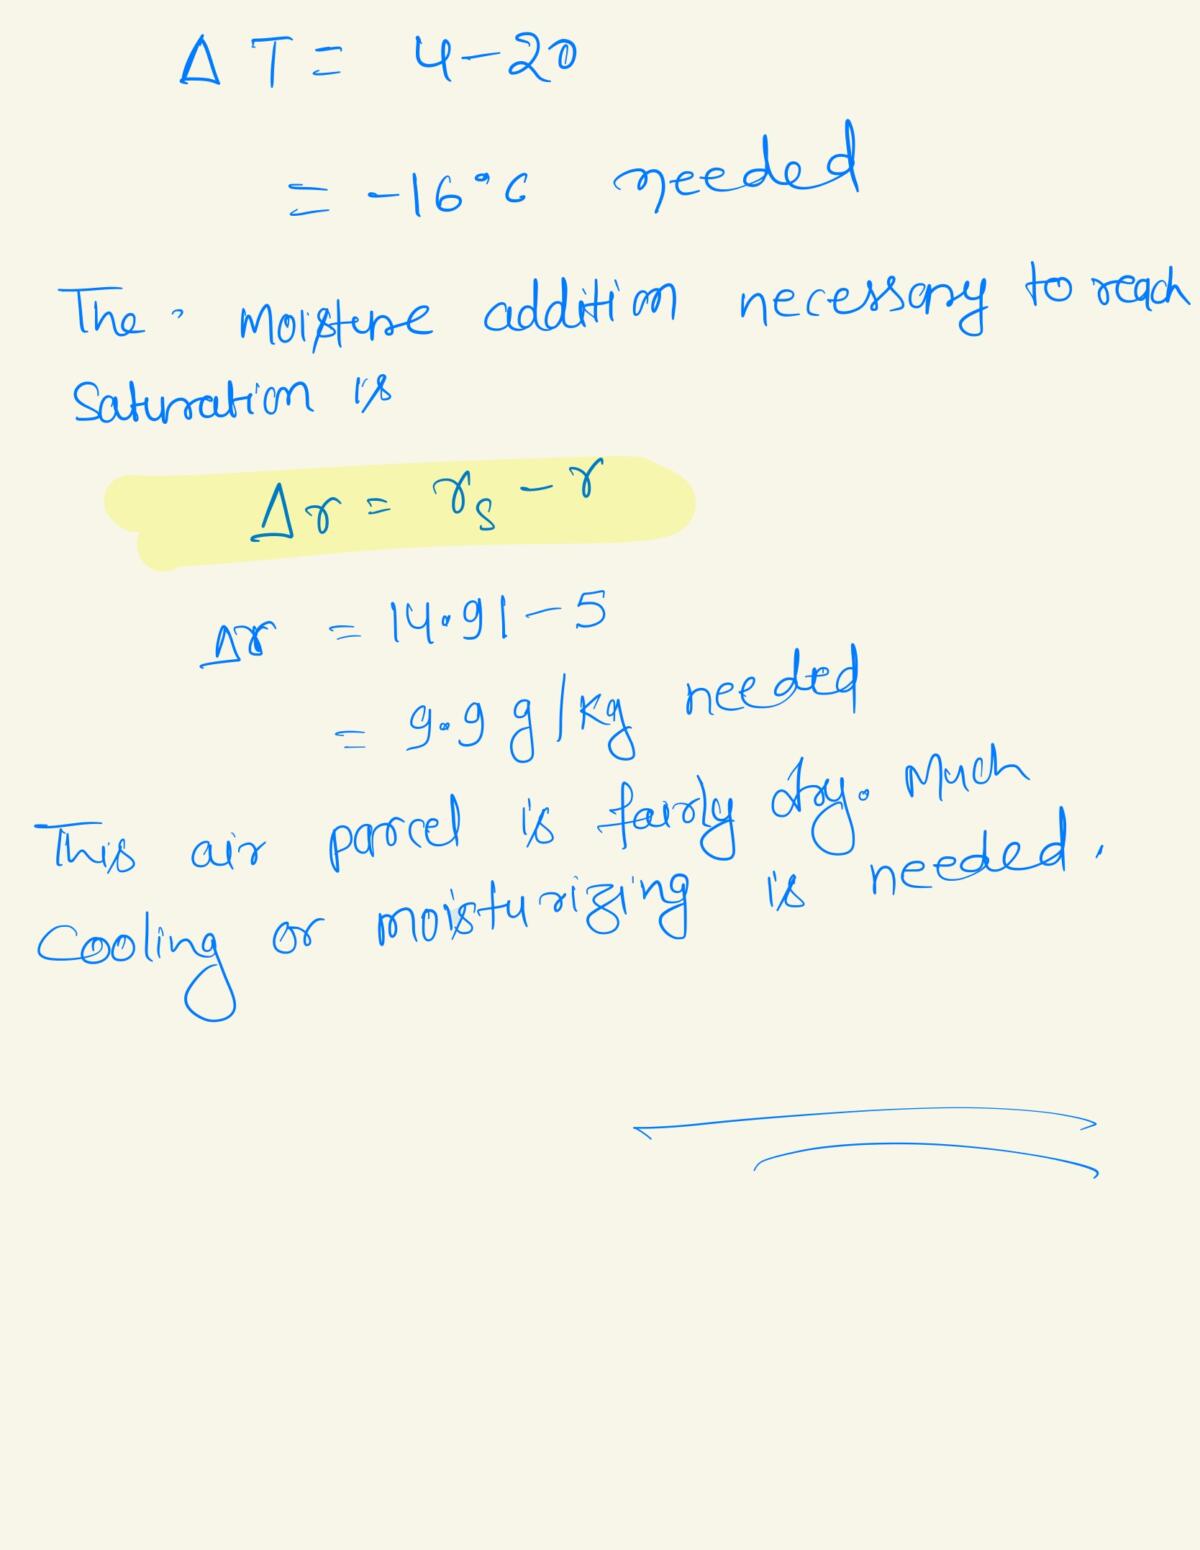 ΔT = 4-20
= -16°C needed
The moisture addition necessary to reach
Saturation is
Δr = rs - r
Δr = 14.91 - 5
= 9.9 g/kg needed
This air parcel is fairly dry. Much
Cooling or moisturizing is needed.